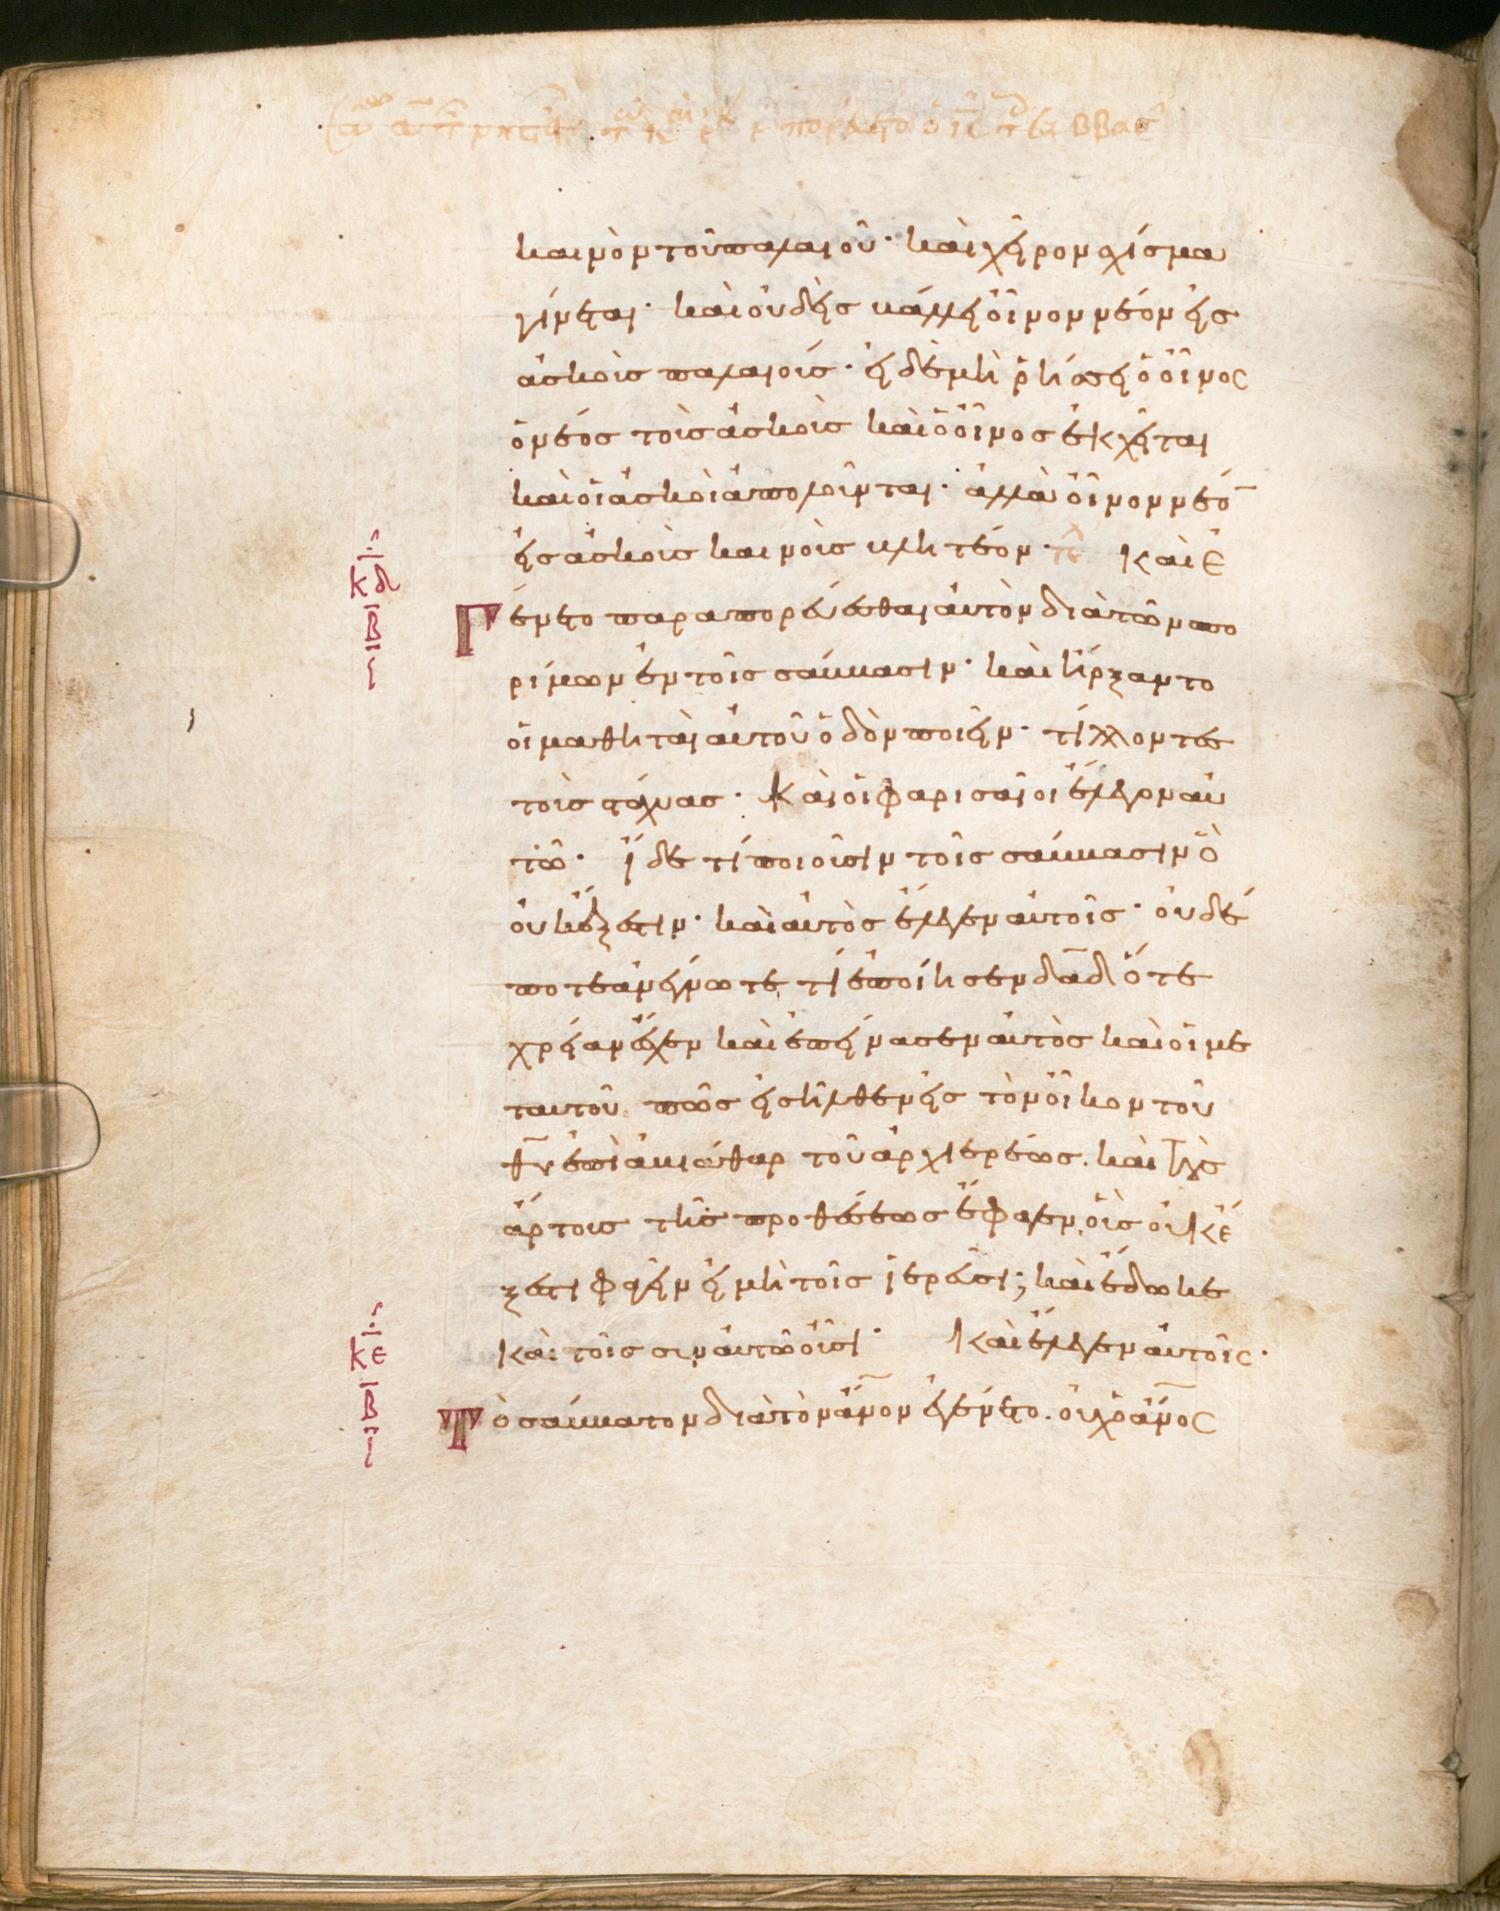 καινὸν τοῦ παλαιοῦ· καὶ χεῖρον σχίσμα
γίνεται· καὶ οὐδεὶς βάλλει οἶνον νέον εἰς
ἀσκοὺς παλαιούς· εἰ δὲ μὴ ῥήσσει ὁ οἶνος
ὁ νέος τοὺς ἀσκοὺς καὶ ὁ οἶνος ἐκχεῖται
καὶ οἱ ἀσκοὶ ἀπολοῦνται· ἀλλὰ οἶνον νέο̅
εἰς ἀσκοὺς καινοὺς βλητέον· Καὶ ἐ
κδ
Β
ι
Γένετο παραπορεύεσθαι αὐτὸν διὰ τῶν σπο
ρίμων ἐν τοῖς σάββασιν· καὶ ἤρξαντο
οἱ μαθηταὶ αὐτοῦ ὁδὸν ποιεῖν· τίλλοντες
τοὺς στάχυας· Καὶ οἱ φαρισαῖοι ἔλεγον αὐ
τῶ· ἴδε τί ποιοῦσιν τοῖς σάββασιν ὃ
οὐκ ἔξεστιν· καὶ αὐτὸς ἔλεγεν αὐτοῖς· οὐδέ
ποτε ἀνέγνωτε τί ἐποίησεν δα̅δ ὅτε
χρείαν ἔσχεν καὶ ἐπείνασεν αὐτὸς καὶ οἱ με
ταυτοῦ πῶς εἰσῆλθεν εἰς τὸν οἶκον τοῦ
θ̅υ ἐπὶ ἀβιάθαρ τοῦ ἀρχιερέως. καὶ τοὺς
ἄρτους τῆς προθέσεως ἔφαγεν, οὓς οὐκ ἔ
ξεστι φαγεῖν εἰ μὴ τοῖς ἱερεῦσι; καὶ ἔδωκε
κε
Β
ι
Καὶ τοῖς σὺν αὐτῶ οὖσι· Καὶ ἔλεγεν αὐτοῖς·
Τὸ σάββατον διὰ τὸν ἄ̅νον ἐγένετο. οὐχ ὁ ἄ̅νος